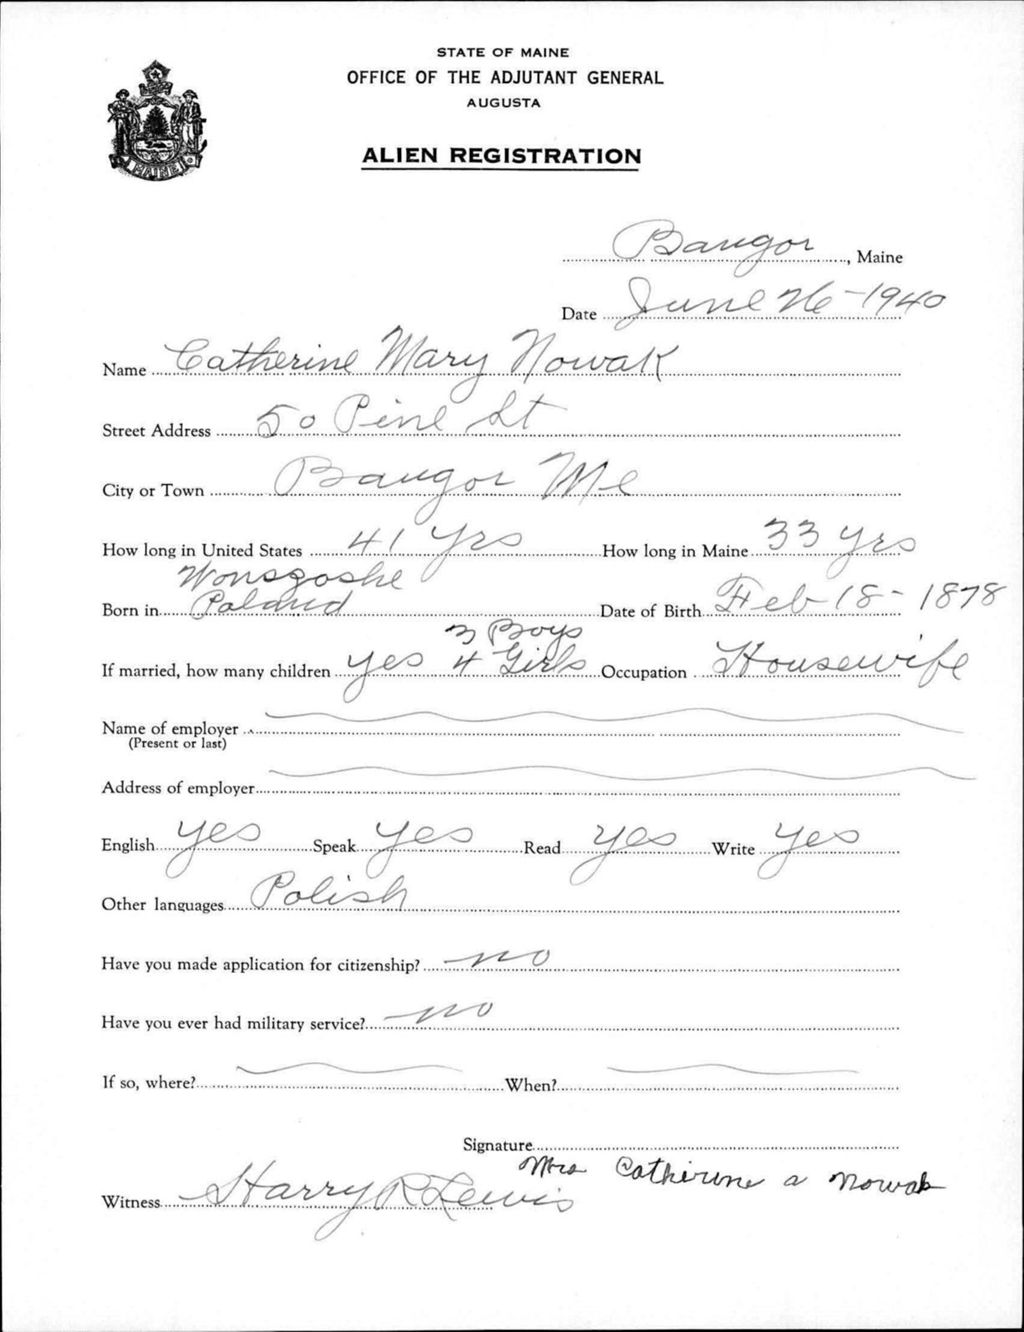 STATE OF MAINE
OFFICE OF THE ADJUTANT GENERAL
AUGUSTA
ALIEN REGISTRATION
MAINE
Bangor, Maine
Date June 26-1940
Name Catherine Mary Nowak
Street Address 50 Pine St
City or Town Bangor Me
How long in United States 41 yrs How long in Maine 33 yrs
Wonsgoshe
Born in Poland Date of Birth Feb 18-1878
3 Boys
If married, how many children yes 4 Girls Occupation Housewife
Name of employer
(Present or last)
Address of employer
English yes Speak yes Read yes Write yes
Other languages Polish
Have you made application for citizenship? no
Have you ever had military service? no
If so, where? When?
Signature
Mrs Catherine a Nowak
Witness Harry R Lewis